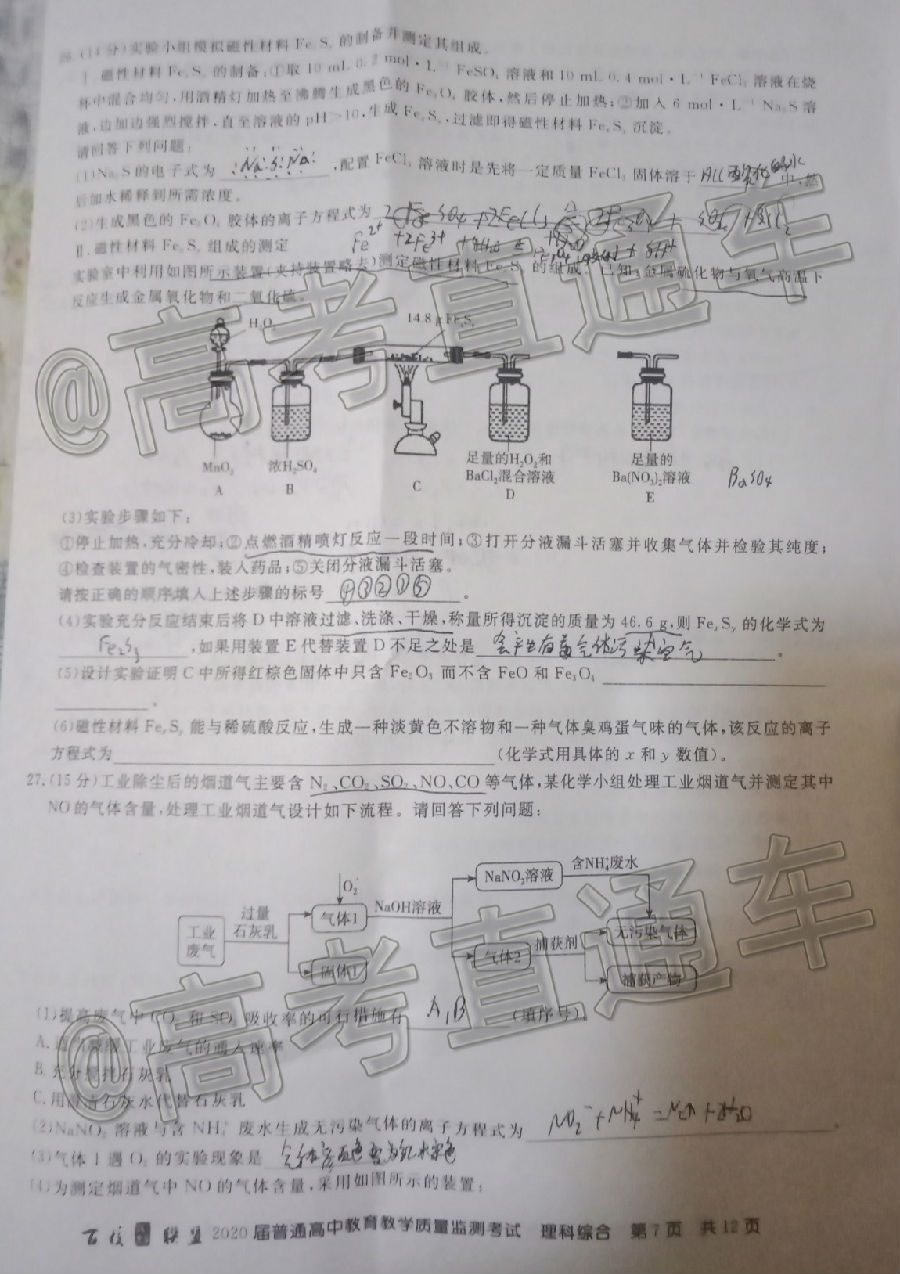 26.(14分)实验小组模拟磁性材料FeₓSᵧ的制备并测定其组成。
Ⅰ.磁性材料FeₓSᵧ的制备:①取10 mL 0.2 mol·L⁻¹ FeSO₄溶液和10 mL 0.4 mol·L⁻¹ FeCl₃溶液在烧
杯中混合均匀,用酒精灯加热至沸腾生成黑色的Fe₃O₄胶体,然后停止加热;②加入6 mol·L⁻¹ Na₂S溶
液,边加边强烈搅拌,直至溶液的pH>10,生成FeₓSᵧ,过滤即得磁性材料FeₓSᵧ沉淀。
请回答下列问题:
(1)Na₂S的电子式为 ,配置FeCl₃溶液时是先将一定质量FeCl₃固体溶于 中,然
后加水稀释到所需浓度。
(2)生成黑色的Fe₃O₄胶体的离子方程式为
Fe²⁺ +2Fe³⁺
Ⅱ.磁性材料FeₓSᵧ组成的测定
实验室中利用如图所示装置(夹持装置略去)测定磁性材料FeₓSᵧ的组成。已知:金属硫化物与氧气高温下
反应生成金属氧化物和二氧化硫。
H₂O₂
14.8 g FeₓSᵧ
MnO₂
浓H₂SO₄
足量的H₂O₂和
BaCl₂混合溶液
足量的
Ba(NO₃)₂溶液
BaSO₄
A
B
C
D
E
(3)实验步骤如下:
①停止加热,充分冷却;②点燃酒精喷灯反应一段时间;③打开分液漏斗活塞并收集气体并检验其纯度;
④检查装置的气密性,装入药品;⑤关闭分液漏斗活塞。
请按正确的顺序填入上述步骤的标号 ④③②①⑤ 。
(4)实验充分反应结束后将D中溶液过滤、洗涤、干燥,称量所得沉淀的质量为46.6 g,则FeₓSᵧ的化学式为
Fe₂S₃ ,如果用装置E代替装置D不足之处是 会产生有毒气体污染空气 。
(5)设计实验证明C中所得红棕色固体中只含Fe₂O₃而不含FeO和Fe₃O₄
。
(6)磁性材料FeₓSᵧ能与稀硫酸反应,生成一种淡黄色不溶物和一种气体臭鸡蛋气味的气体,该反应的离子
方程式为 (化学式用具体的x和y数值)。
27.(15分)工业除尘后的烟道气主要含N₂、CO₂、SO₂、NO、CO等气体,某化学小组处理工业烟道气并测定其中
NO的气体含量,处理工业烟道气设计如下流程。请回答下列问题:
工业
废气
过量
石灰乳
O₂
气体1
固体1
NaOH溶液
NaNO₂溶液
含NH₄⁺废水
气体2
捕获剂
无污染气体
捕获产物
(1)提高废气中CO₂和SO₂吸收率的可行措施有 A,B (填序号)。
A.适当缓慢工业废气的通入速率
B.充分搅拌石灰乳
C.用澄清石灰水代替石灰乳
(2)NaNO₂溶液与含NH₄⁺废水生成无污染气体的离子方程式为 NO₂⁻+NH₄⁺=N₂↑+2H₂O 。
(3)气体1遇O₂的实验现象是 气体
(4)为测定烟道气中NO的气体含量,采用如图所示的装置:
百校联盟 2020届普通高中教育教学质量监测考试 理科综合 第7页 共12页
@高考直通车
@高考直通车